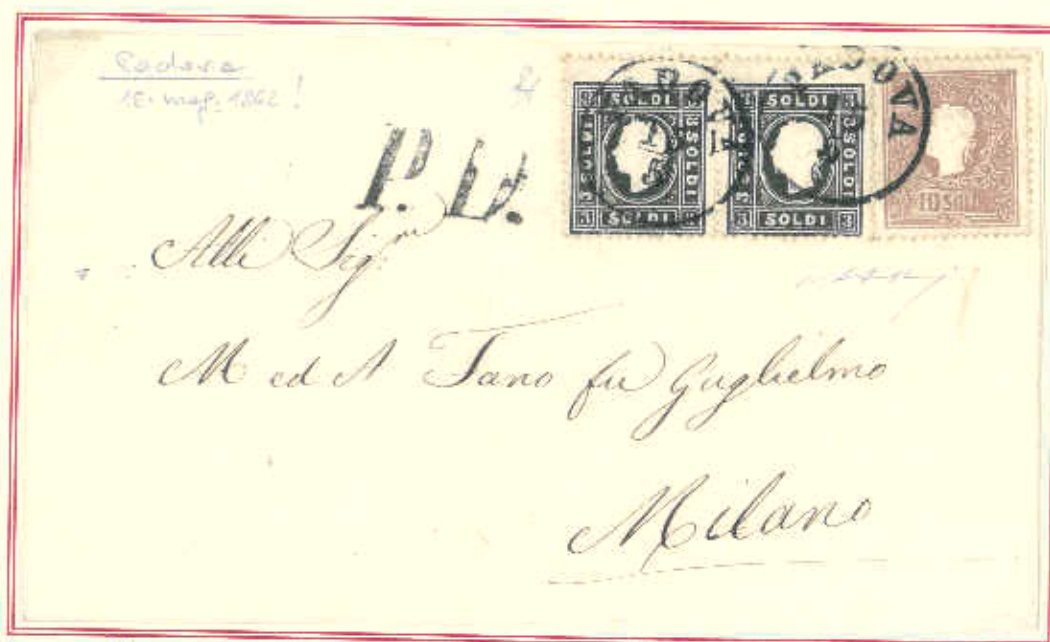 Padova
1862!
P. D.
PADOVA
PADOVA
3 SOLDI 3
SOLDI
SOLDI
3 SOLDI 3
3 SOLDI 3
SOLDI
SOLDI
3 SOLDI 3
10 SOLDI
Alli Sig.ri
M ed A Fano fu Guglielmo
Milano